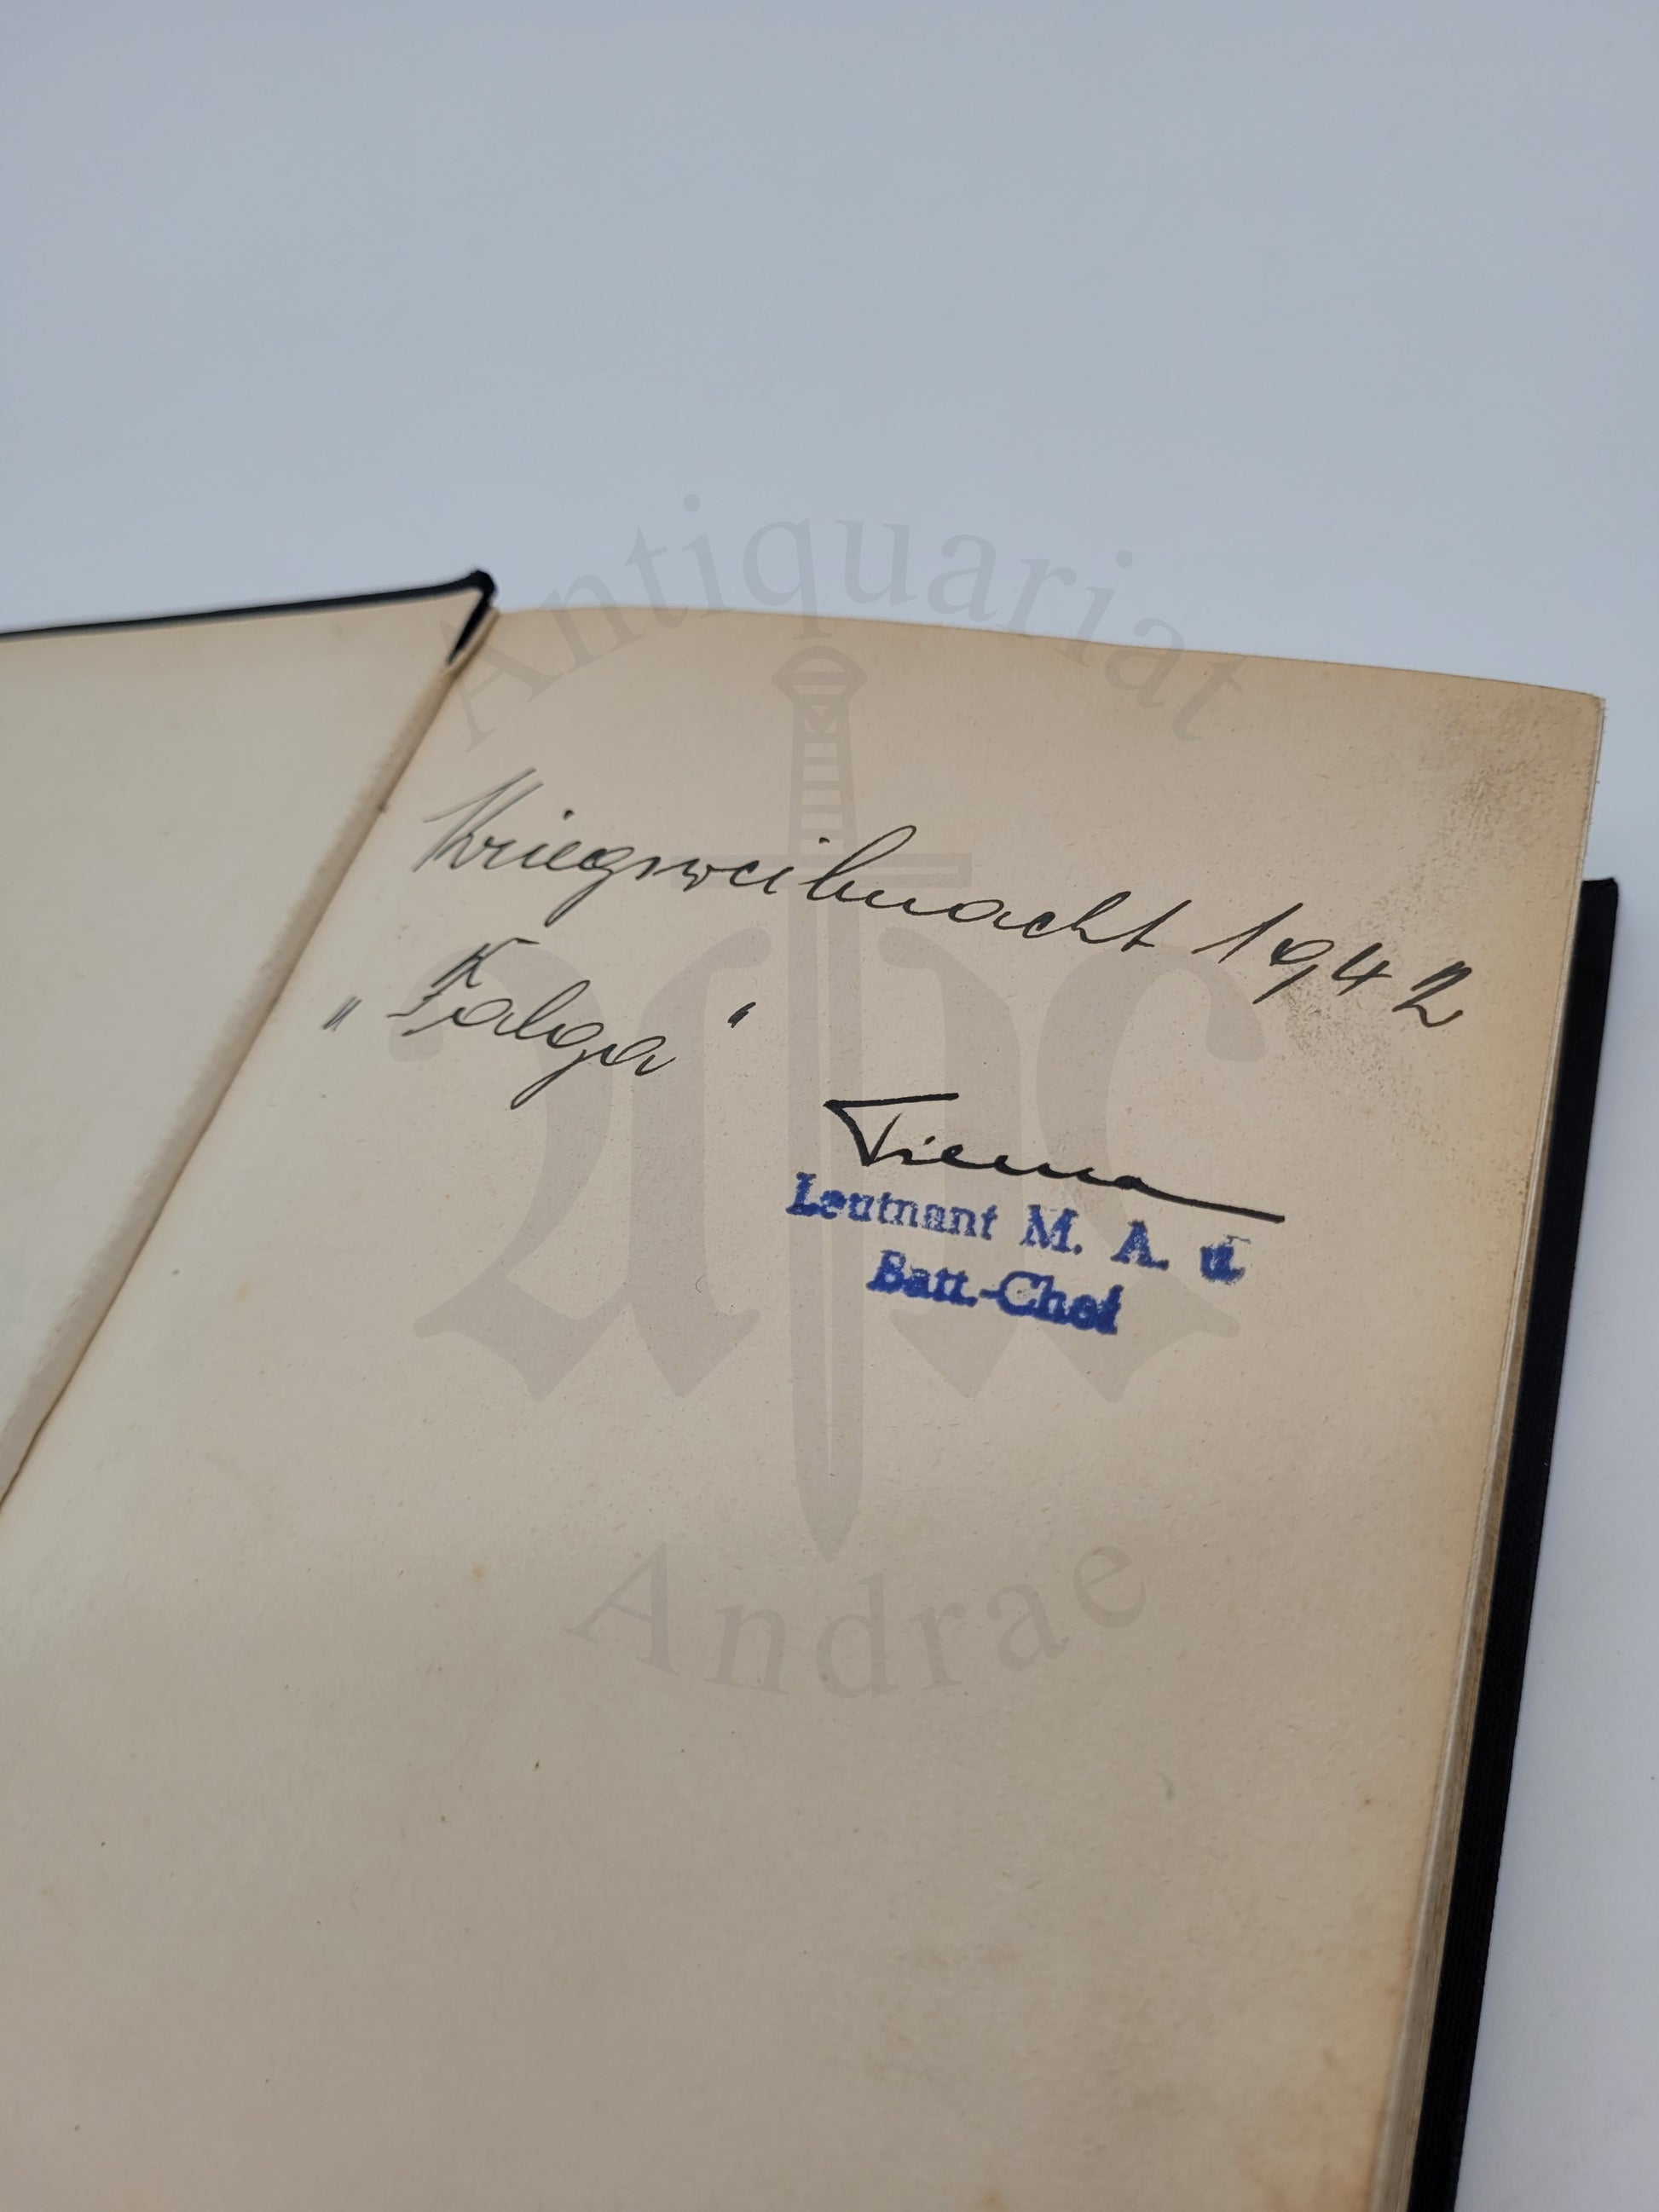 Antiquariat
Kriegsweihnacht 1942
„Falga"
Leutnant M. A. u.
Batt.-Chef
Andrae